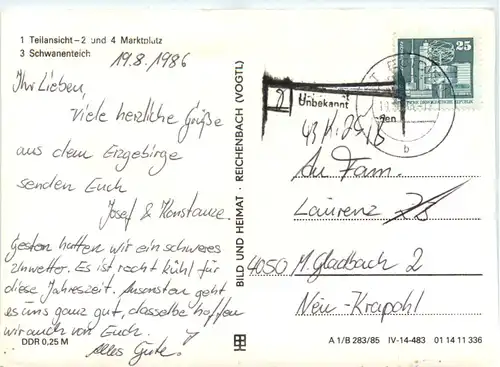 1 Teilansicht – 2 und 4 Marktplatz
3 Schwanenteich
19.8.1986
Ihr Lieben,
Viele herzliche Grüße
aus dem Erzgebirge
senden Euch
Josef & Konstanze.
Gestern hatten wir ein schweres
Unwetter. Es ist recht kühl für
diese Jahreszeit. Ansonsten geht
es uns ganz gut, dasselbe hoffen
wir auch von Euch.
Alles Gute.
DDR 0,25 M
BILD UND HEIMAT · REICHENBACH (VOGTL)
25
DEUTSCHE DEMOKRATISCHE REPUBLIK
Unbekannt
gen
b
An Fam.
Laurenz
4050 M. Gladbach 2
Neu-Krapohl
A 1/B 283/85 IV-14-483 01 14 11 336